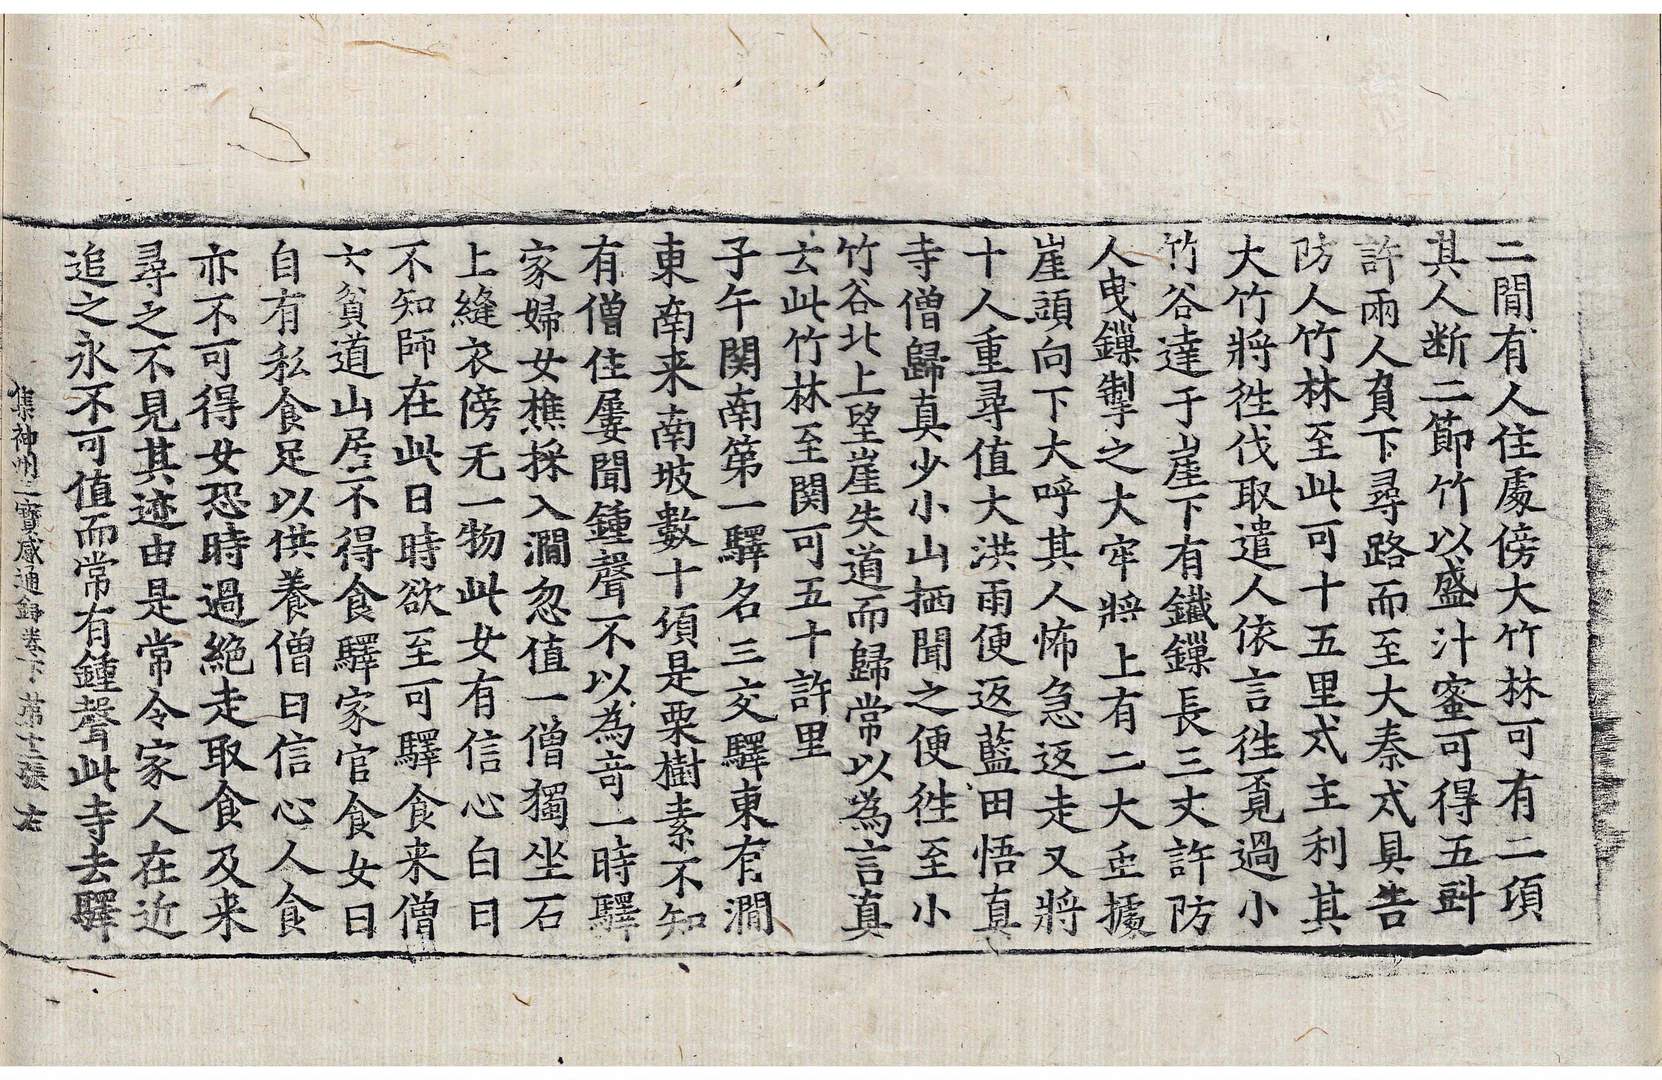 二間有人住處傍大竹林可有二項
其人断二節竹以盛汁蜜可得五㪷
許兩人負下尋路而至大秦戍具告
防人竹林至此可十五里戍主利其
大竹將徃伐取遣人依言徃覓過小
竹谷達于崖下有鐵鏁長三丈許防
人曳鏁掣之大牢將上有二大虎據
崖頭向下大呼其人怖急返走又將
十人重尋值大洪雨便返藍田悟真
寺僧歸真少小山栖聞之便徃至小
竹谷北上望崖失道而歸常以為言真
云此竹林至関可五十許里
子午関南第一驛名三交驛東有澗
東南来南坡數十頃是栗樹素不知
有僧住屢聞鍾聲不以為竒一時驛
家婦女樵採入澗忽值一僧獨坐石
上縫衣傍无一物此女有信心白曰
不知師在此日時欲至可驛食来僧
云貧道山居不得食驛家官食女曰
自有私食足以供養僧曰信心人食
亦不可得女恐時過絶走取食及来
尋之不見其迹由是常令家人在近
追之永不可值而常有鍾聲此寺去驛
集神州三寶感通録卷下 第十二張 左